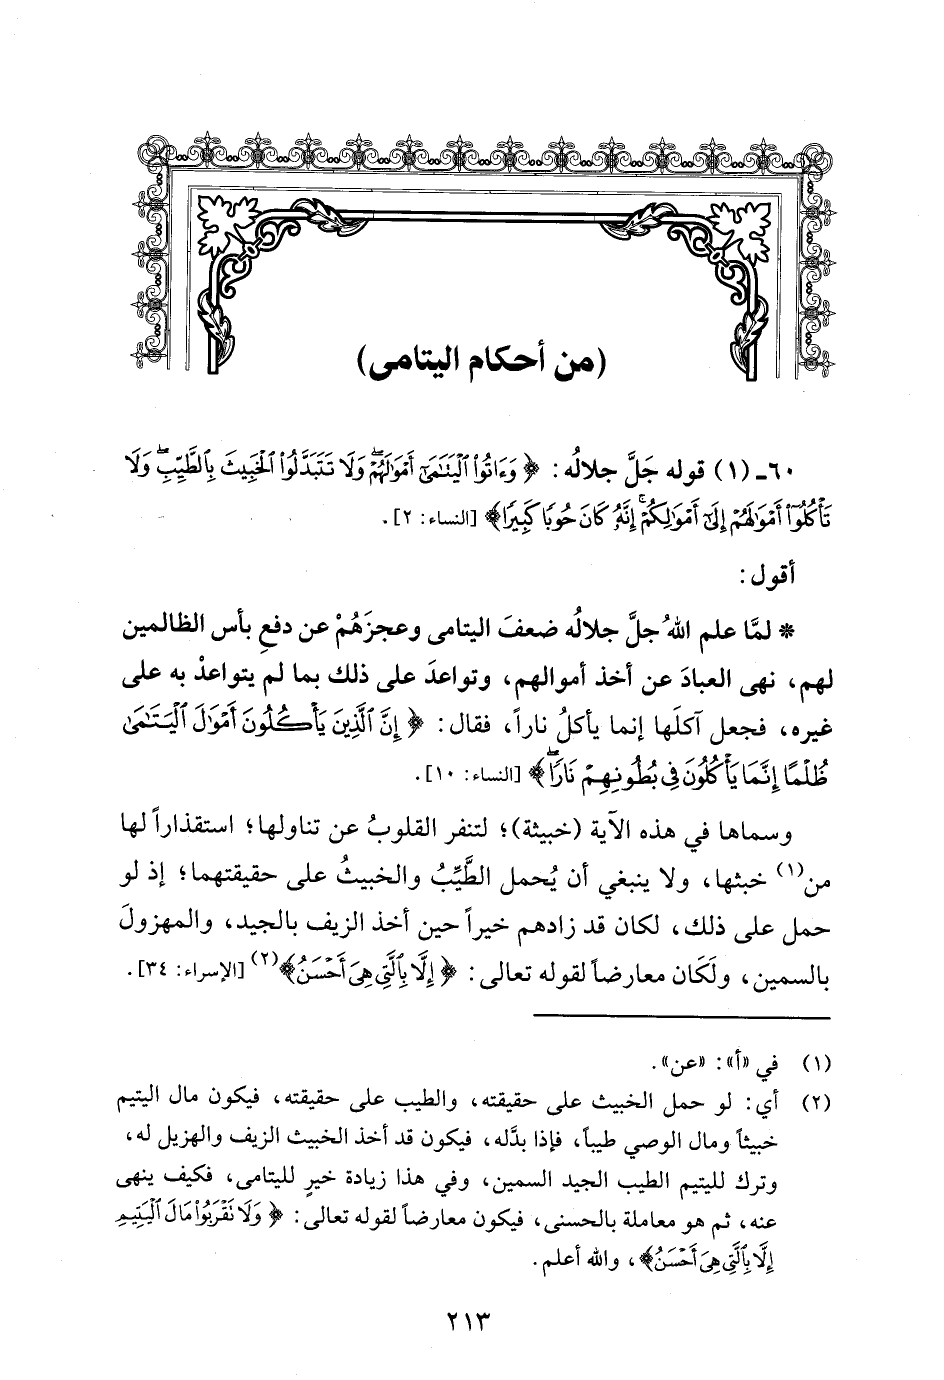 (من أحكام اليتامى)
٦٠ـ (١) قوله جَلَّ جلالُه: ﴿وَءَاتُوا۟ ٱلْيَتَـٰمَىٰٓ أَمْوَٰلَهُمْ ۖ وَلَا تَتَبَدَّلُوا۟ ٱلْخَبِيثَ بِٱلطَّيِّبِ ۖ وَلَا
تَأْكُلُوٓا۟ أَمْوَٰلَهُمْ إِلَىٰٓ أَمْوَٰلِكُمْ ۚ إِنَّهُۥ كَانَ حُوبًا كَبِيرًا﴾ [النساء: ٢].
أقول:
* لمَّا علم اللهُ جلَّ جلالُه ضعفَ اليتامى وعجزَهُمْ عن دفعِ بأس الظالمين
لهم، نهى العبادَ عن أخذ أموالهم، وتواعدَ على ذلك بما لم يتواعدْ به على
غيره، فجعل آكلَها إنما يأكلُ ناراً، فقال: ﴿إِنَّ ٱلَّذِينَ يَأْكُلُونَ أَمْوَٰلَ ٱلْيَتَـٰمَىٰ
ظُلْمًا إِنَّمَا يَأْكُلُونَ فِى بُطُونِهِمْ نَارًا ۖ﴾ [النساء: ١٠].
وسماها في هذه الآية (خبيثة)؛ لتنفر القلوبُ عن تناولها؛ استقذاراً لها
من(١) خبثها، ولا ينبغي أن يُحمل الطَّيِّبُ والخبيثُ على حقيقتهما؛ إذ لو
حمل على ذلك، لكان قد زادهم خيراً حين أخذ الزيف بالجيد، والمهزولَ
بالسمين، ولَكَان معارضاً لقوله تعالى: ﴿إِلَّا بِٱلَّتِى هِىَ أَحْسَنُ﴾(٢) [الإسراء: ٣٤].
(١) في «أ»: «عن».
(٢) أي: لو حمل الخبيث على حقيقته، والطيب على حقيقته، فيكون مال اليتيم
خبيثاً ومال الوصي طيباً، فإذا بدَّله، فيكون قد أخذ الخبيث الزيف والهزيل له،
وترك لليتيم الطيب الجيد السمين، وفي هذا زيادة خيرٍ لليتامى، فكيف ينهى
عنه، ثم هو معاملة بالحسنى، فيكون معارضاً لقوله تعالى: ﴿وَلَا نَقْرَبُوا۟ مَالَ ٱلْيَتِيمِ
إِلَّا بِٱلَّتِى هِىَ أَحْسَنُ﴾، والله أعلم.
٢١٣